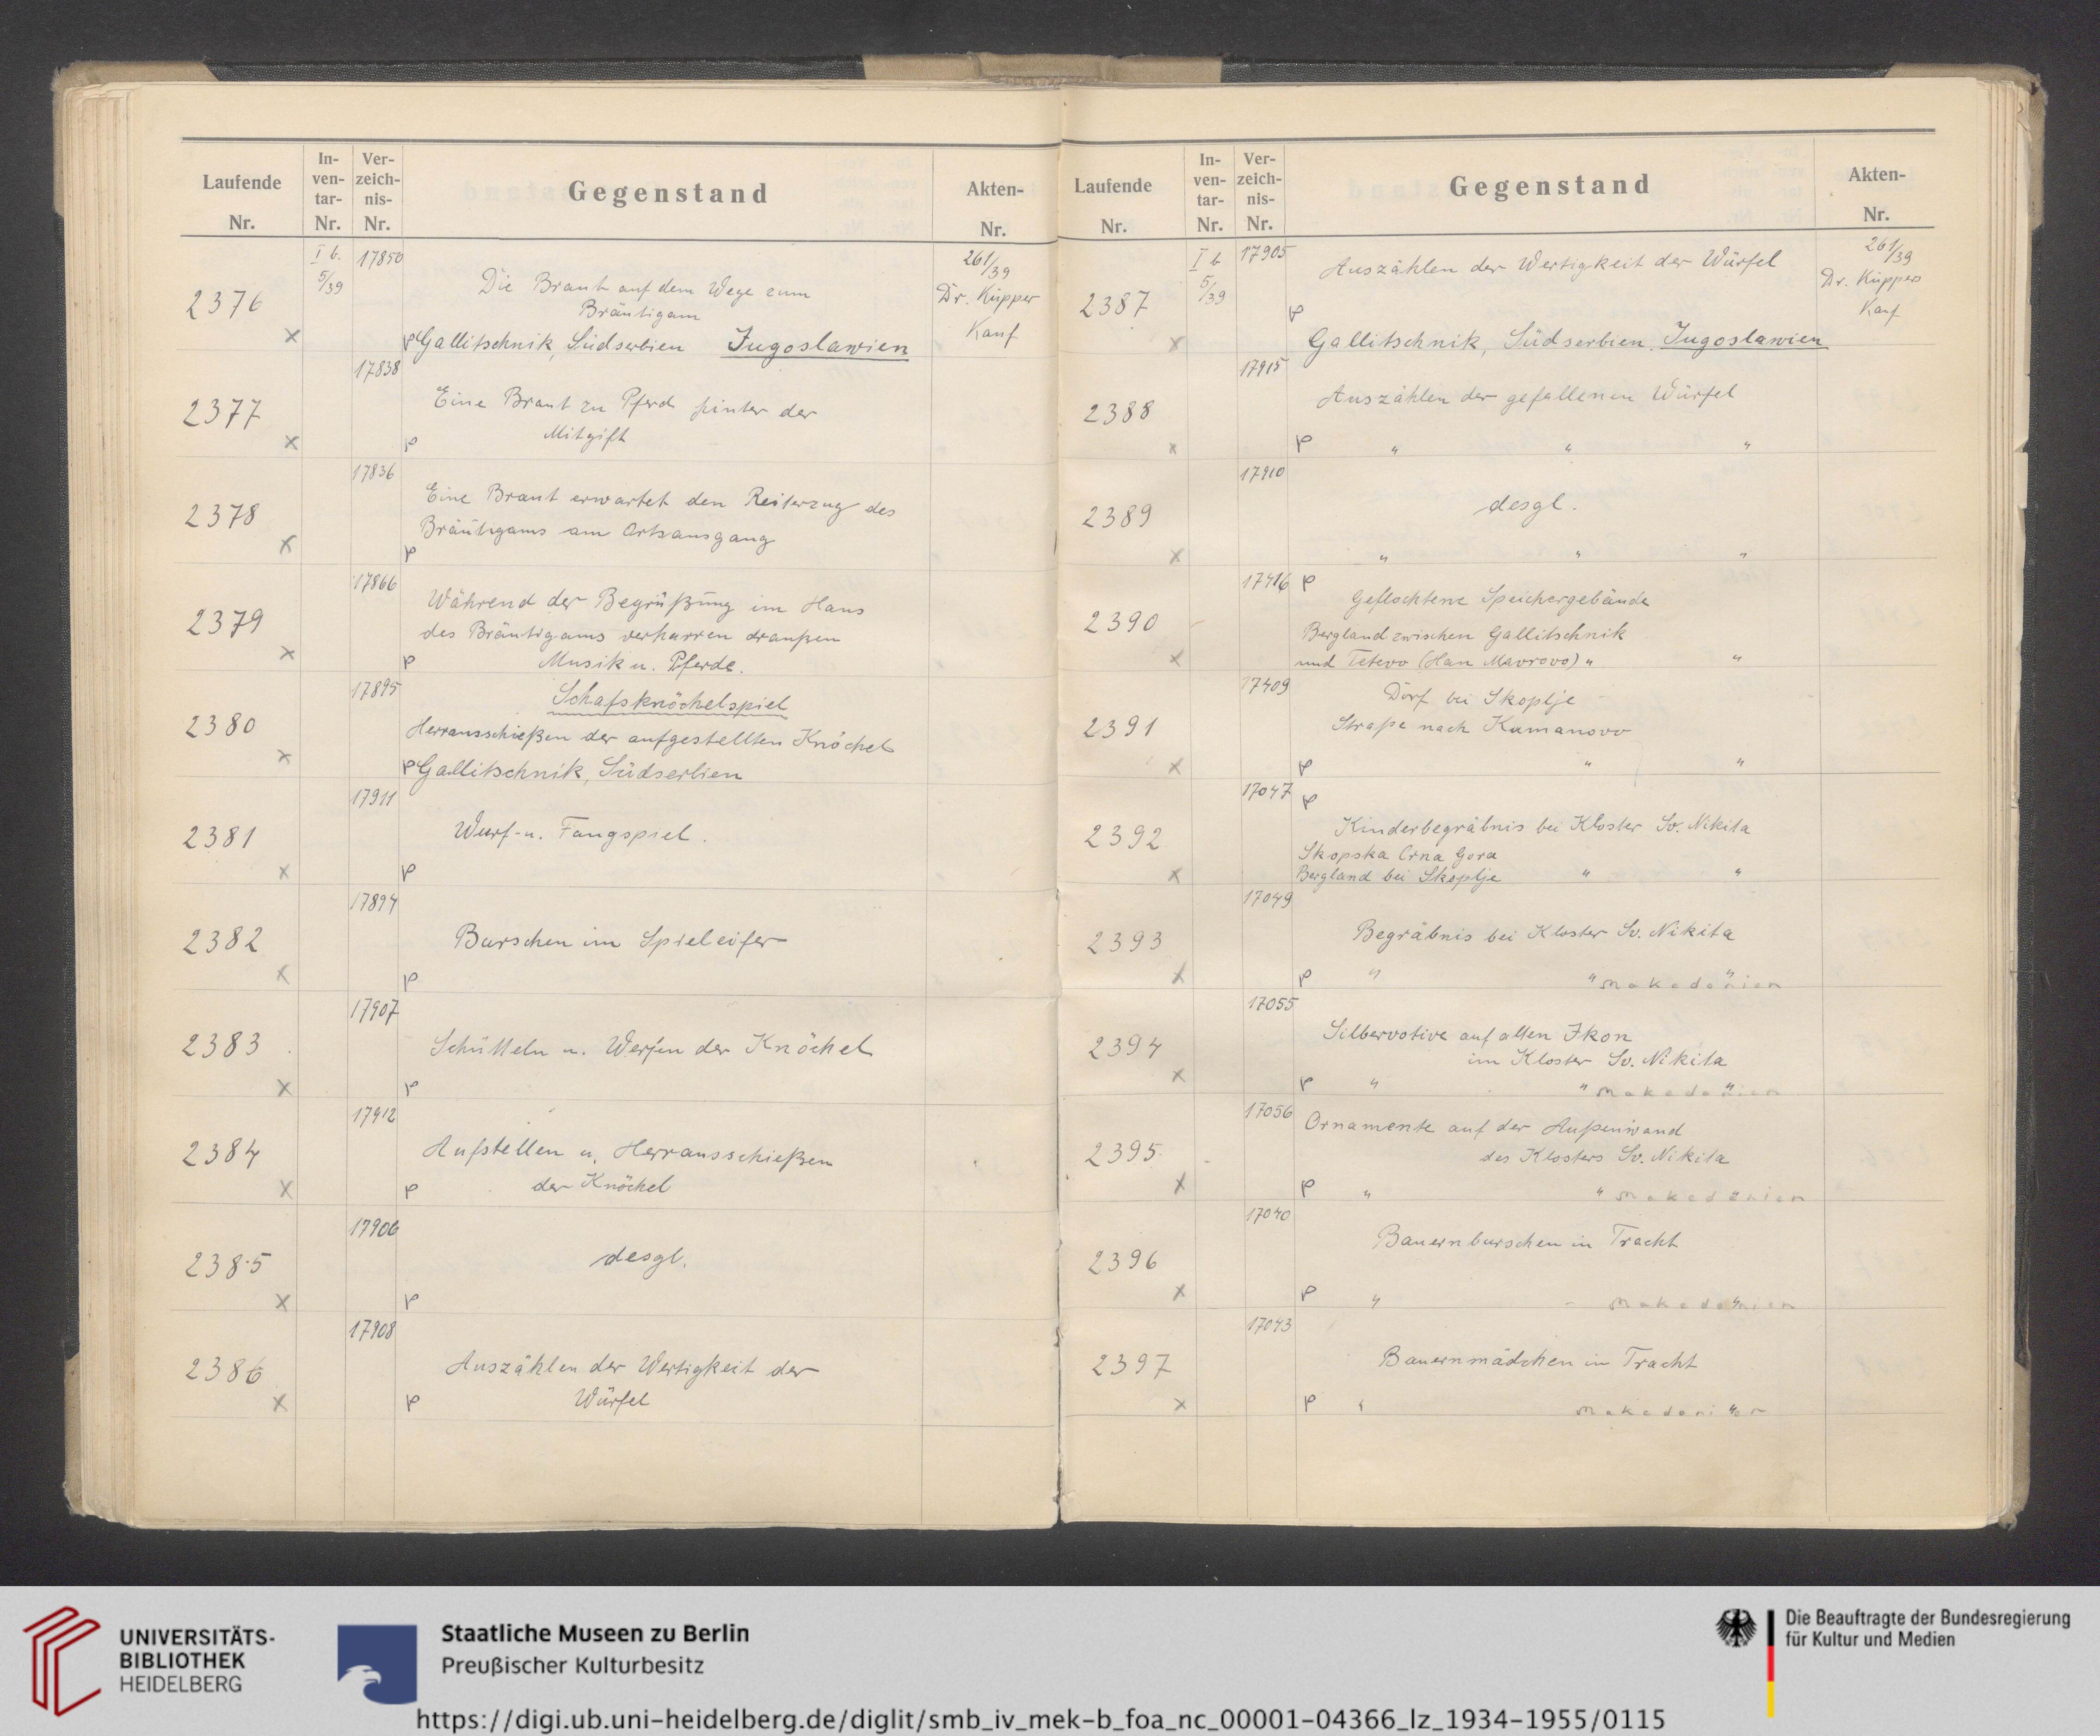 Laufende Nr.
In-ven-tar-Nr.
Ver-zeich-nis-Nr.
Gegenstand
Akten-Nr.
I b. 5/39
17850
261/39
2376
Die Braut auf dem Wege zum
Bräutigam
Dr. Küpper
Kauf
x
p Gallitschnik, Südserbien Jugoslawien
17838
2377
Eine Braut zu Pferd hinter der
Mitgift
x
p
17836
2378
Eine Braut erwartet den Reiterzug des
Bräutigams am Ortsausgang
x
p
17866
2379
Während der Begrüßung im Haus
des Bräutigams verharren draußen
Musik u. Pferde.
x
p
17895
Schafsknöchelspiel
2380
Herrausschießen der aufgestellten Knöchel
x
p Gallitschnik, Südserbien
17911
2381
Wurf- u. Fangspiel.
x
p
17894
2382
Burschen im Spieleifer
x
p
17907
2383
Schütteln u. Werfen der Knöchel
x
p
17912
2384
Aufstellen u. Herrausschießen
der Knöchel
x
p
17906
2385
desgl.
x
p
17908
2386
Auszählen der Wertigkeit der
Würfel
x
p
Laufende Nr.
In-ven-tar-Nr.
Ver-zeich-nis-Nr.
Gegenstand
Akten-Nr.
I b 5/39
17905
261/39
Auszählen der Wertigkeit der Würfel
Dr. Küppers
2387
Kauf
p
x
Gallitschnik, Südserbien, Jugoslawien
17915
2388
Auszählen der gefallenen Würfel
x
p " " "
17910
2389
desgl.
x
" " "
17416 p
2390
Geflochtene Speichergebäude
Bergland zwischen Gallitschnik
x
und Tetovo (Han Mavrovo) " "
17409
Dorf bei Skoplje
2391
Straße nach Kumanovo
x
p " "
17047 p
2392
Kinderbegräbnis bei Kloster Sv. Nikita
Skopska Crna Gora
x
Bergland bei Skoplje " "
17049
2393
Begräbnis bei Kloster Sv. Nikita
x
p " " " Makedonien
17055
2394
Silbervotive auf alten Ikon
im Kloster Sv. Nikita
x
p " " " Makedonien
17056
Ornamente auf der Außenwand
2395
des Klosters Sv. Nikita
x
p " " Makedonien
17040
2396
Bauernburschen in Tracht
x
p " - " Makedonien
17043
2397
Bauernmädchen in Tracht
x
p " " Makedonien
UNIVERSITÄTS-
BIBLIOTHEK
HEIDELBERG
Staatliche Museen zu Berlin
Preußischer Kulturbesitz
Die Beauftragte der Bundesregierung
für Kultur und Medien
https://digi.ub.uni-heidelberg.de/diglit/smb_iv_mek-b_foa_nc_00001-04366_lz_1934-1955/0115